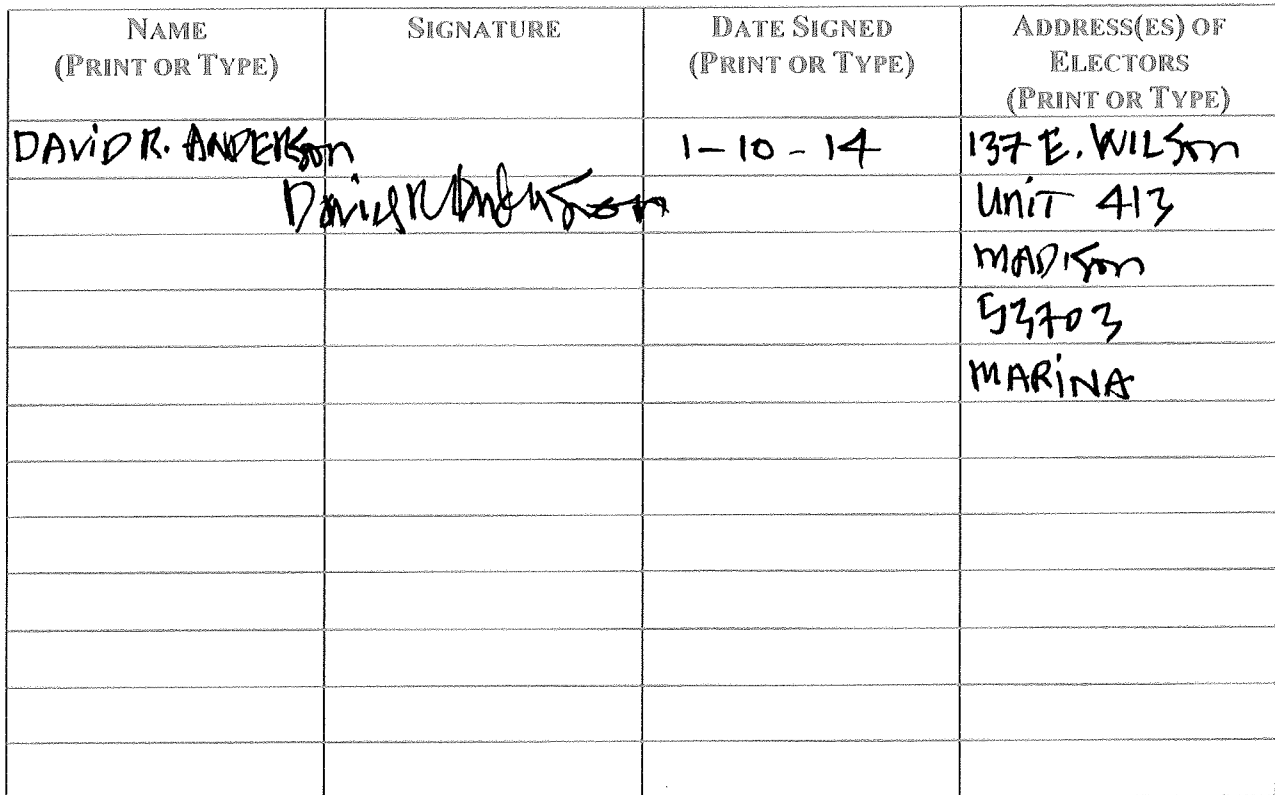 NAME (PRINT OR TYPE)
SIGNATURE
DATE SIGNED (PRINT OR TYPE)
ADDRESS(ES) OF ELECTORS (PRINT OR TYPE)
DAViD R. ANDERSon
1-10-14
137 E. WILSon
David R Anderson
UniT 413
MADISon
53703
MARiNA